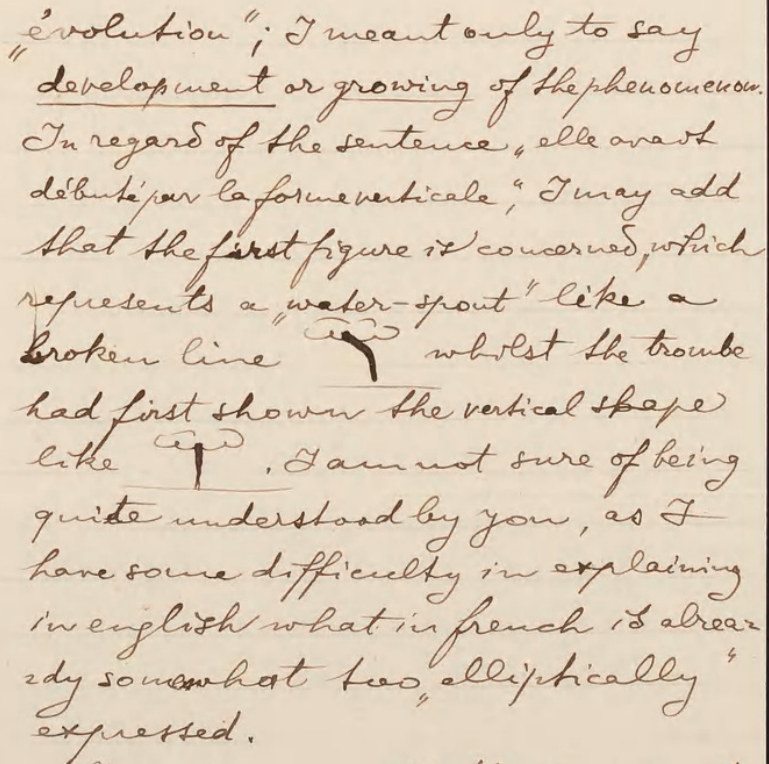 „évolution"; I meant only to say
development or growing of the phenomenon.
In regard of the sentence „elle avait
débuté par la forme verticale", I may add
that the first figure is concerned, which
represents a „water-spout" like a
broken line whilst the trombe
had first shown the vertical shape
like . I am not sure of being
quite understood by you, as I
have some difficulty in explaining
in english what in french is alrea-
dy somewhat too „elliptically"
expressed.